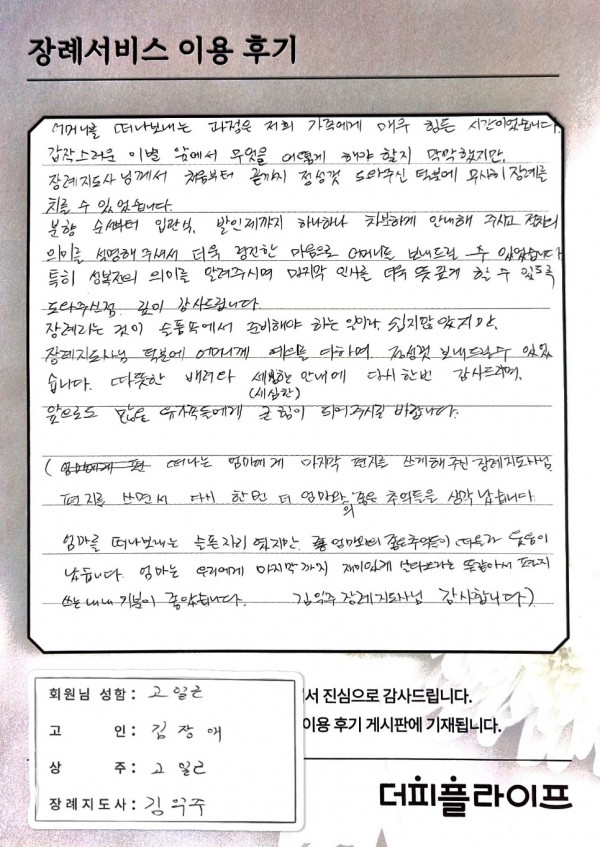 장례서비스 이용 후기
어머니를 떠나보내는 과정은 저희 가족에게 매우 힘든 시간이었습니다.
갑작스러운 이별 앞에서 무엇을 어떻게 해야 할지 막막했지만,
장례지도사님께서 처음부터 끝까지 정성껏 도와주신 덕분에 무사히 장례를
치를 수 있었습니다.
분향 순서부터 입관식, 발인제까지 하나하나 차분하게 안내해 주시고 절차의
의미를 설명해 주셔서 더욱 경건한 마음으로 어머니를 보내드릴 수 있었습니다
특히 성복전의 의미를 알려주시며 마지막 인사를 더욱 뜻깊게 할 수 있도록
도와주신점 깊이 감사드립니다.
장례라는 것이 슬픔속에서 준비해야 하는 일이라 쉽지많았지만,
장례지도사님 덕분에 어머니께 예의를 다하며 정성껏 보내드릴수 있었
습니다. 따뜻한 배려와 세밤한 안내에 다시한번 감사드리며,
(세심한)
앞으로도 많은 유가족들에게 큰 힘이 되어주시길 바랍니다.
( 엄마에게 편 떠나는 엄마에게 마지막 편지를 쓰게해 주신 장례지도사님
편지를 쓰면서 다시 한번 더 엄마와의 좋은 추억들을 생각납습니다.
엄마를 떠나보내는 슬픈자리 였지만 좋 엄마와의 좋은추억들이 떠올라 웃음이
났습니다. 엄마는 우리에게 마지막까지 재미있게 산다보라는 뜻같아서 편지
쓰는내내 기분이 좋았습니다. 김익주 장례지도사님 감사합니다)
회원님 성함: 고일근
고 인: 김장애
상 주: 고일근
장례지도사: 김익주
서 진심으로 감사드립니다.
이용 후기 게시판에 기재됩니다.
더피플라이프